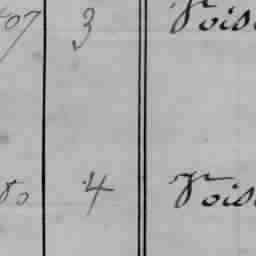 07 3 Vois
80 4 Vois